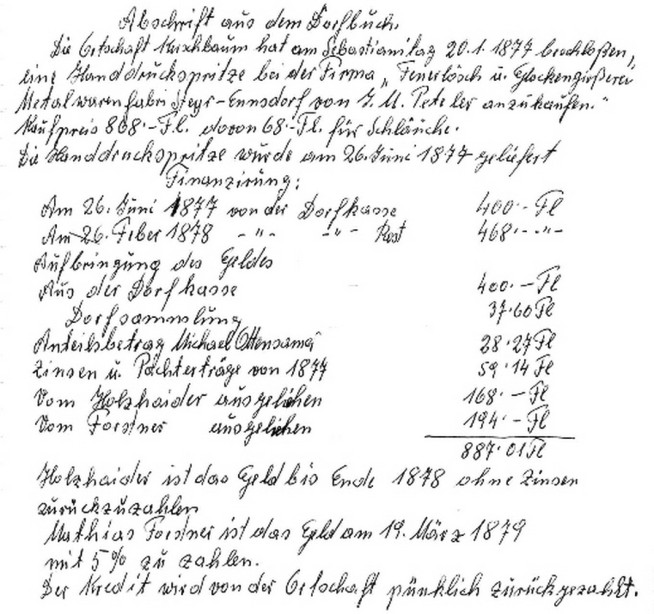 Abschrift aus dem Dorfbuch.
Die Ortschaft Kirschbaum hat am Sebastianitag 20.1.1877 beschloßen,
eine Handdruckspritze bei der Firma „Feuerlösch u. Glockengießerei
Metalwarenfabri Steyr-Ennsdorf von J. M. Peteler anzukaufen."
Kaufpreis 868.-Fl. davon 68.-Fl. für Schläuche.
Die Handdruckspritze wurde am 26. Juni 1877 geliefert
Finanzirung:
Am 26. Juni 1877 von der Dorfkasse 400.- Fl
Am 26. Feber 1878 -"- -"- Rest 468.- -"-
Aufbringung des Geldes
Aus der Dorfkasse 400.- Fl
Dorfsammlung 37.60 Fl
Anteilsbetrag Michael Ottensamer 28.27 Fl
Zinsen u. Pachterträge von 1877 59.14 Fl
Vom Holzhaider ausgeliehen 168.- Fl
Vom Forstner ausgeliehen 194.- Fl
887.01 Fl
Holzhaider ist das Geld bis Ende 1878 ohne Zinsen
zurückzuzahlen
Mathias Forstner ist das Geld am 19. März 1879
mit 5% zu zahlen.
Der Kredit wird von der Ortschaft pünklich zurückgezahlt.